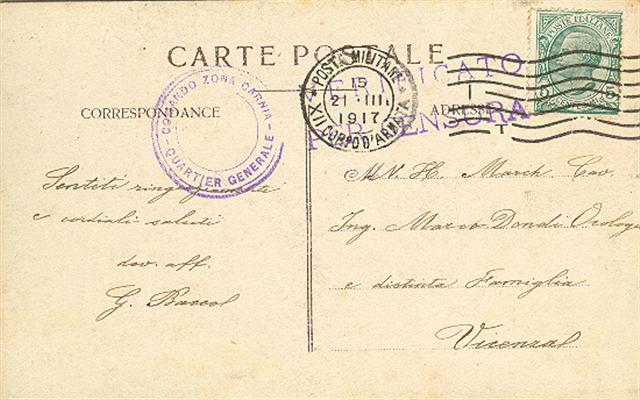 CARTE POSTALE
POSTE ITALIANE
POSTA MILITARE
15
21 - III
1917
XII CORPO D'ARMATA
VERIFICATO
PER CENSURA
COMANDO ZONA CARNIA
QUARTIER GENERALE
CORRESPONDANCE
ADRESSE
Sentiti ringraziamenti
e cordiali saluti
dev. aff.
G.
N. H. March Cav.
Ing. Marco Dondi Orologio
e distinta Famiglia
Vicenza